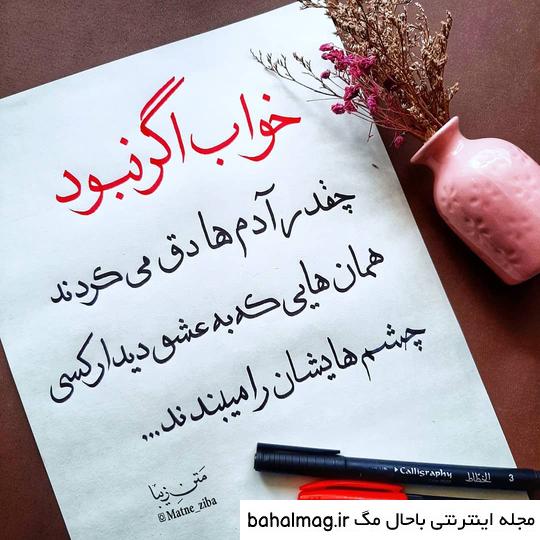 خواب اگر نبود
چقدر آدم ها دق می کردند
همان هایی که به عشق دیدار کسی
چشم هایشان را میبندند...
متن زیبا
@Matne_ziba
Calligraphy 3
مجله اینترنتی باحال مگ bahalmag.ir